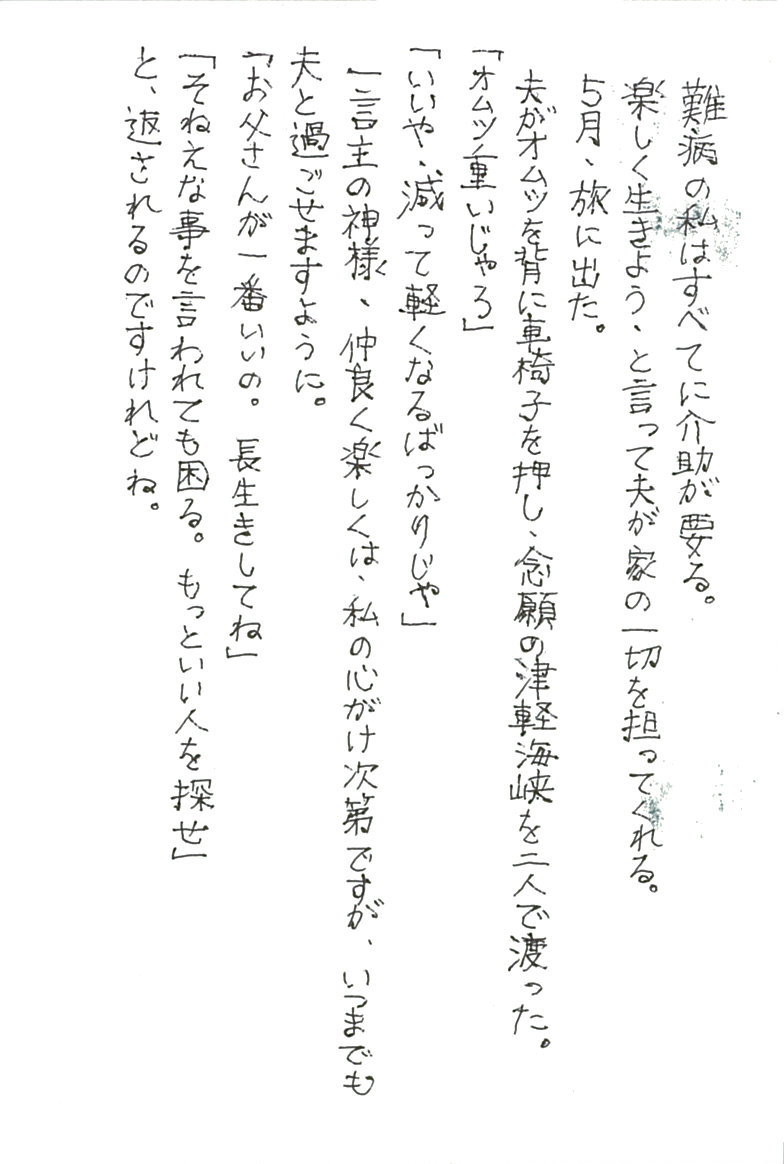 難病の私はすべてに介助が要る。
楽しく生きよう、と言って夫が家の一切を担ってくれる。
5月、旅に出た。
夫がオムツを背に車椅子を押し、念願の津軽海峡を二人で渡った。
「オムツ重いじゃろ」
「いいや、減って軽くなるばっかりじゃ」
一言主の神様、仲良く楽しくは、私の心がけ次第ですが、いつまでも
夫と過ごせますように。
「お父さんが一番いいの。長生きしてね」
「そねえな事を言われても困る。もっといい人を探せ」
と、返されるのですけれどね。